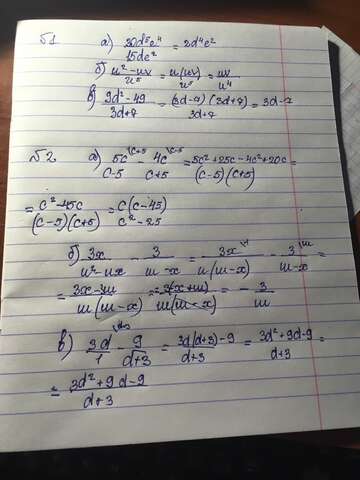 №1 а) 30d⁵c⁴/15dc² = 2d⁴c²
б) (u² - ux)/u⁵ = u(ux)/u⁵ = ux/u⁴
в) (9d² - 49)/(3d+7) = (3d-7)(3d+7)/(3d+7) = 3d-7
№2. а) 5c/(c-5) \c+5 - 4c/(c+5) \c-5 = (5c² + 25c - 4c² + 20c)/((c-5)(c+5)) =
= (c² + 45c)/((c-5)(c+5)) = c(c-45)/(c² - 25)
б) 3x/(u² - ux) - 3/(u-x) = 3x/(u(u-x)) \1 - 3/(u-x) \u =
= (3x-3u)/(u(u-x)) = 3(x+u)/(u(u-x)) = - 3/u
в) 3d/1 - 9/(d+3) = (3d(d+3)-9)/(d+3) = (3d² + 9d-9)/(d+3) =
= (3d² + 9d-9)/(d+3)